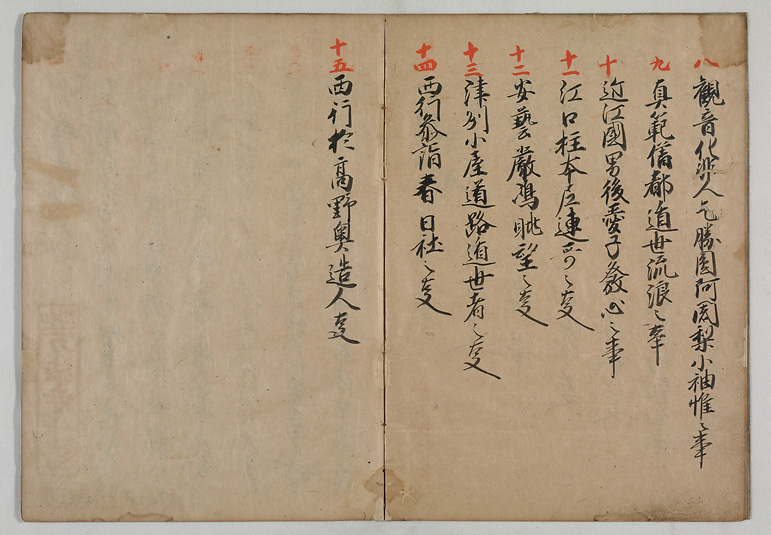 八 観音化非人乞勝圓阿闍梨小袖惟之事
九 真範僧都遁世流浪之事
十 近江國男後愛子發心之事
十一 江口柱本庄連哥之叓
十二 安藝嚴嶋眺望之叓
十三 津列小屋道路遁世者之叓
十四 西行参詣春日社之叓
十五 西行於高野奥造人叓